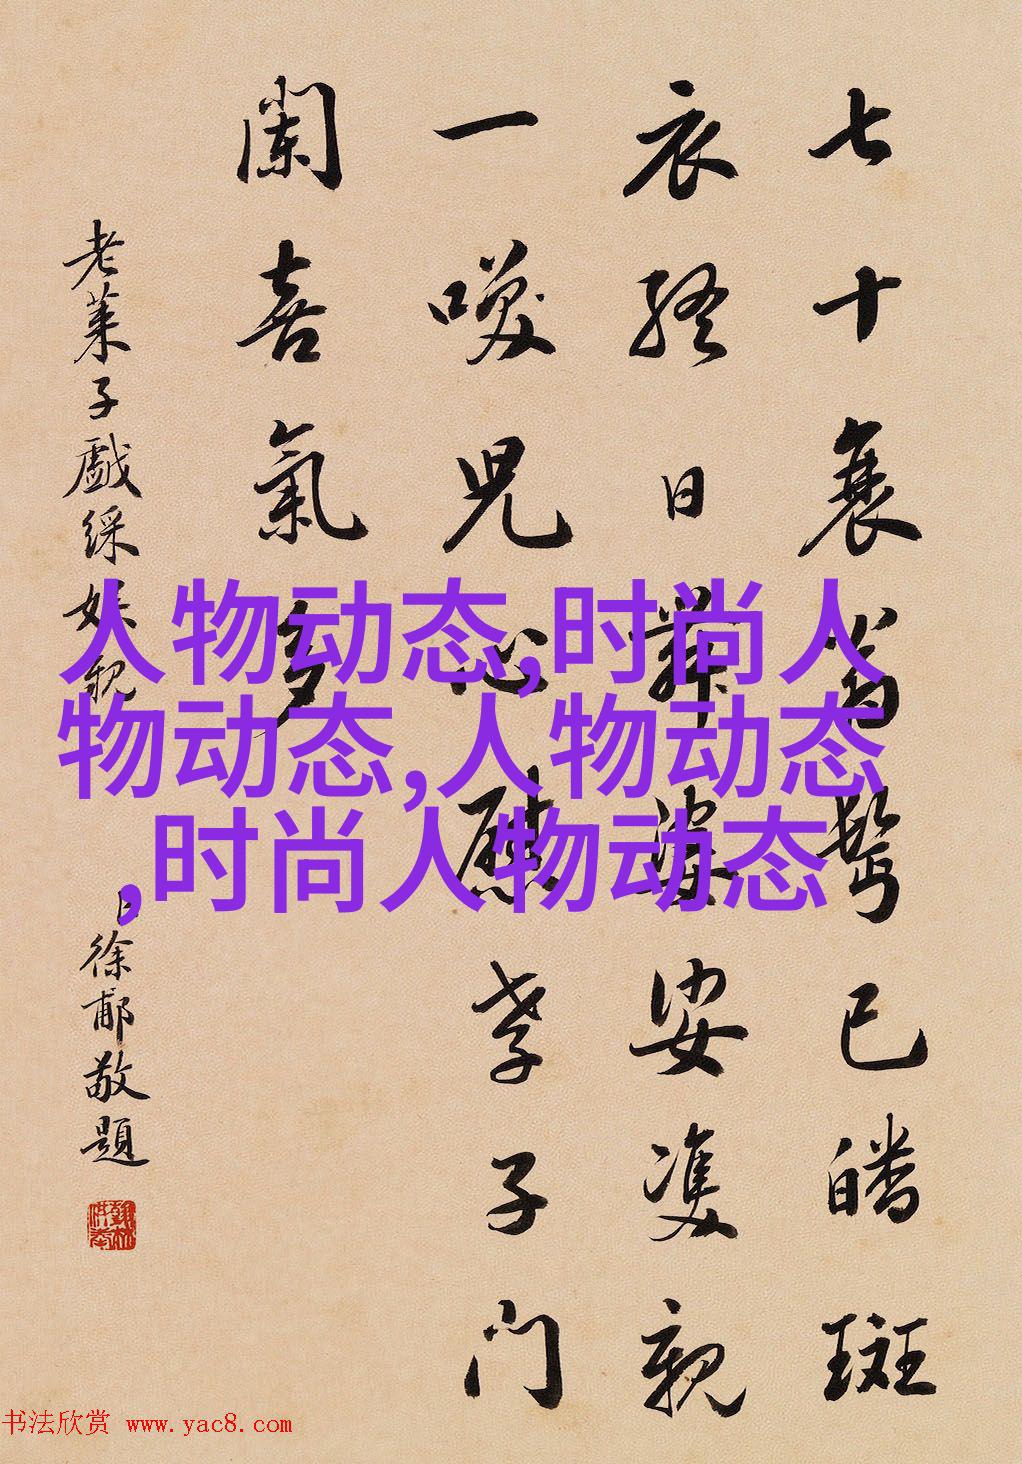 七十衰翁鬢已皤斑
衣終日舞婆娑雙親
一喚兒心慰孝子門
闌喜氣多
老萊子戲綵娛親
徐郙敬題
人物动态,时尚人
物动态,人物动态
,时尚人物动态
书法欣赏 www.yac8.com